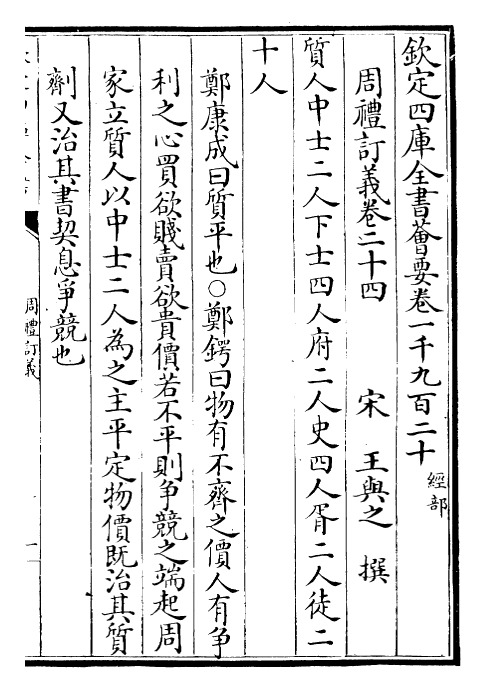 欽定四庫全書薈要卷一千九百二十 經部
周禮訂義卷二十四 宋 王與之 撰
質人中士二人下士四人府二人史四人胥二人徒二
十人
鄭康成曰質平也○鄭鍔曰物有不齊之價人有爭
利之心買欲賤賣欲貴價若不平則爭競之端起周
家立質人以中士二人為之主平定物價既治其質
劑又治其書契息爭競也
周禮訂義
一